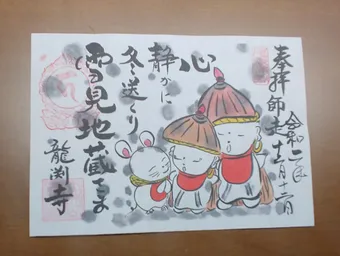 奉拝 師走
令和二年
十二月十二日
心
静かに
冬送くり
雪見地蔵さま
龍渕寺